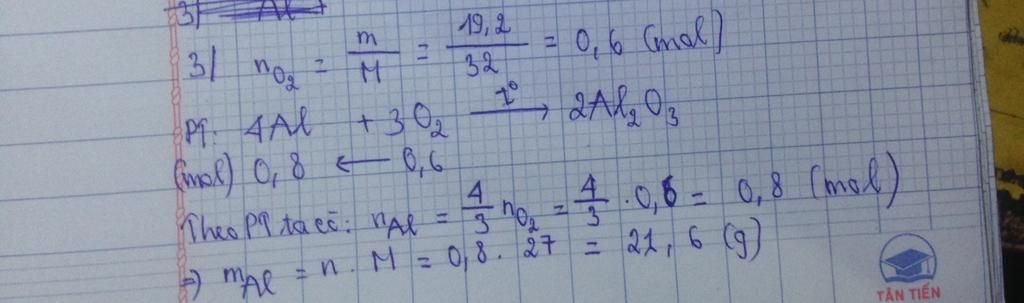 3) Al
3) n_O₂ = m/M = 19,2/32 = 0,6 (mol)
PT: 4Al + 3O₂ —t°→ 2Al₂O₃
(mol) 0,8 ← 0,6
Theo PT ta có: n_Al = 4/3 n_O₂ = 4/3 . 0,6 = 0,8 (mol)
⇒ m_Al = n . M = 0,8 . 27 = 21,6 (g)
TÂN TIẾN